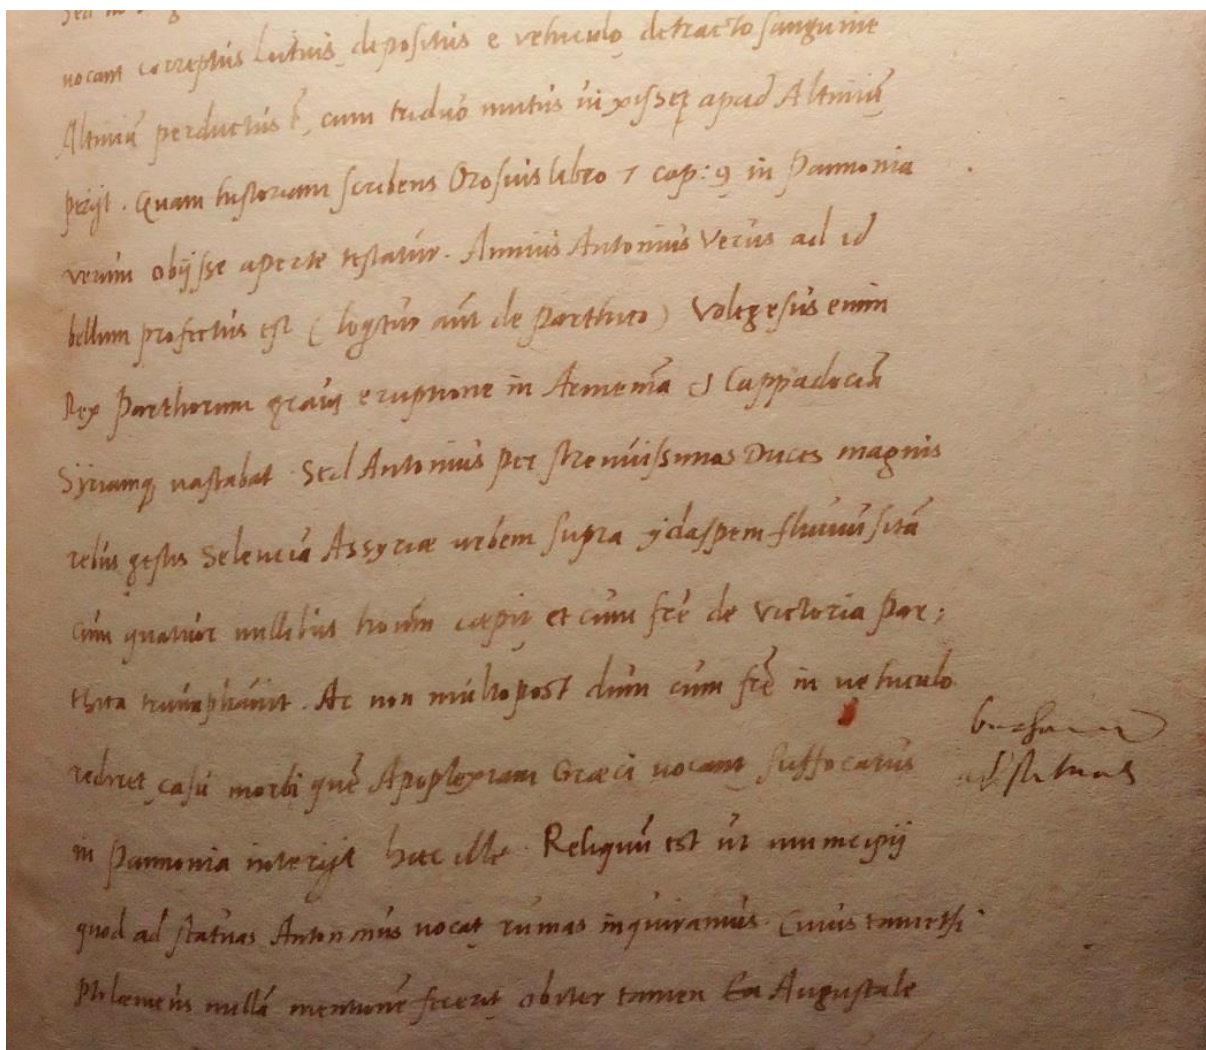 vocant correptus Lutius, depositus e vehiculo detracto sanguine
Altinũ perductus ẽ, cum triduo mutus vixisset apud Altinũ
perijt. Quam historiam scribens Orosius libro 7 cap: 9 in Pannonia
verum obijsse aperte testatur. Annius Antonius Verus ad id
bellum profectus est (loqtur aũt de Parthico) Vologesus enim
Rex Parthorum gravi eruptione in Armeniã et Cappadociã
Syriamq vastabat. Sed Antonius per strenuissimos Duces magnis
rebus gestis Seleuciã Assyriae urbem supra ydaspem fluviũ sitã
cum quatuor millibus hoĩum caepit et cum frẽ de victoria Par:
thica triumphavit. Ac non multo post dum cum frẽ in vehiculo
sederet, casu morbi quẽ Apoplexiam Graeci vocant suffocatus
in Pannonia interijt haec ille. Reliquũ est ut municipij
quod ad statuas Antoninus vocat ruinas inquiramus. Cuius tametsi
Ptolemeus nullã mentionẽ fecerit obiter tamen Augustale
ad statuas